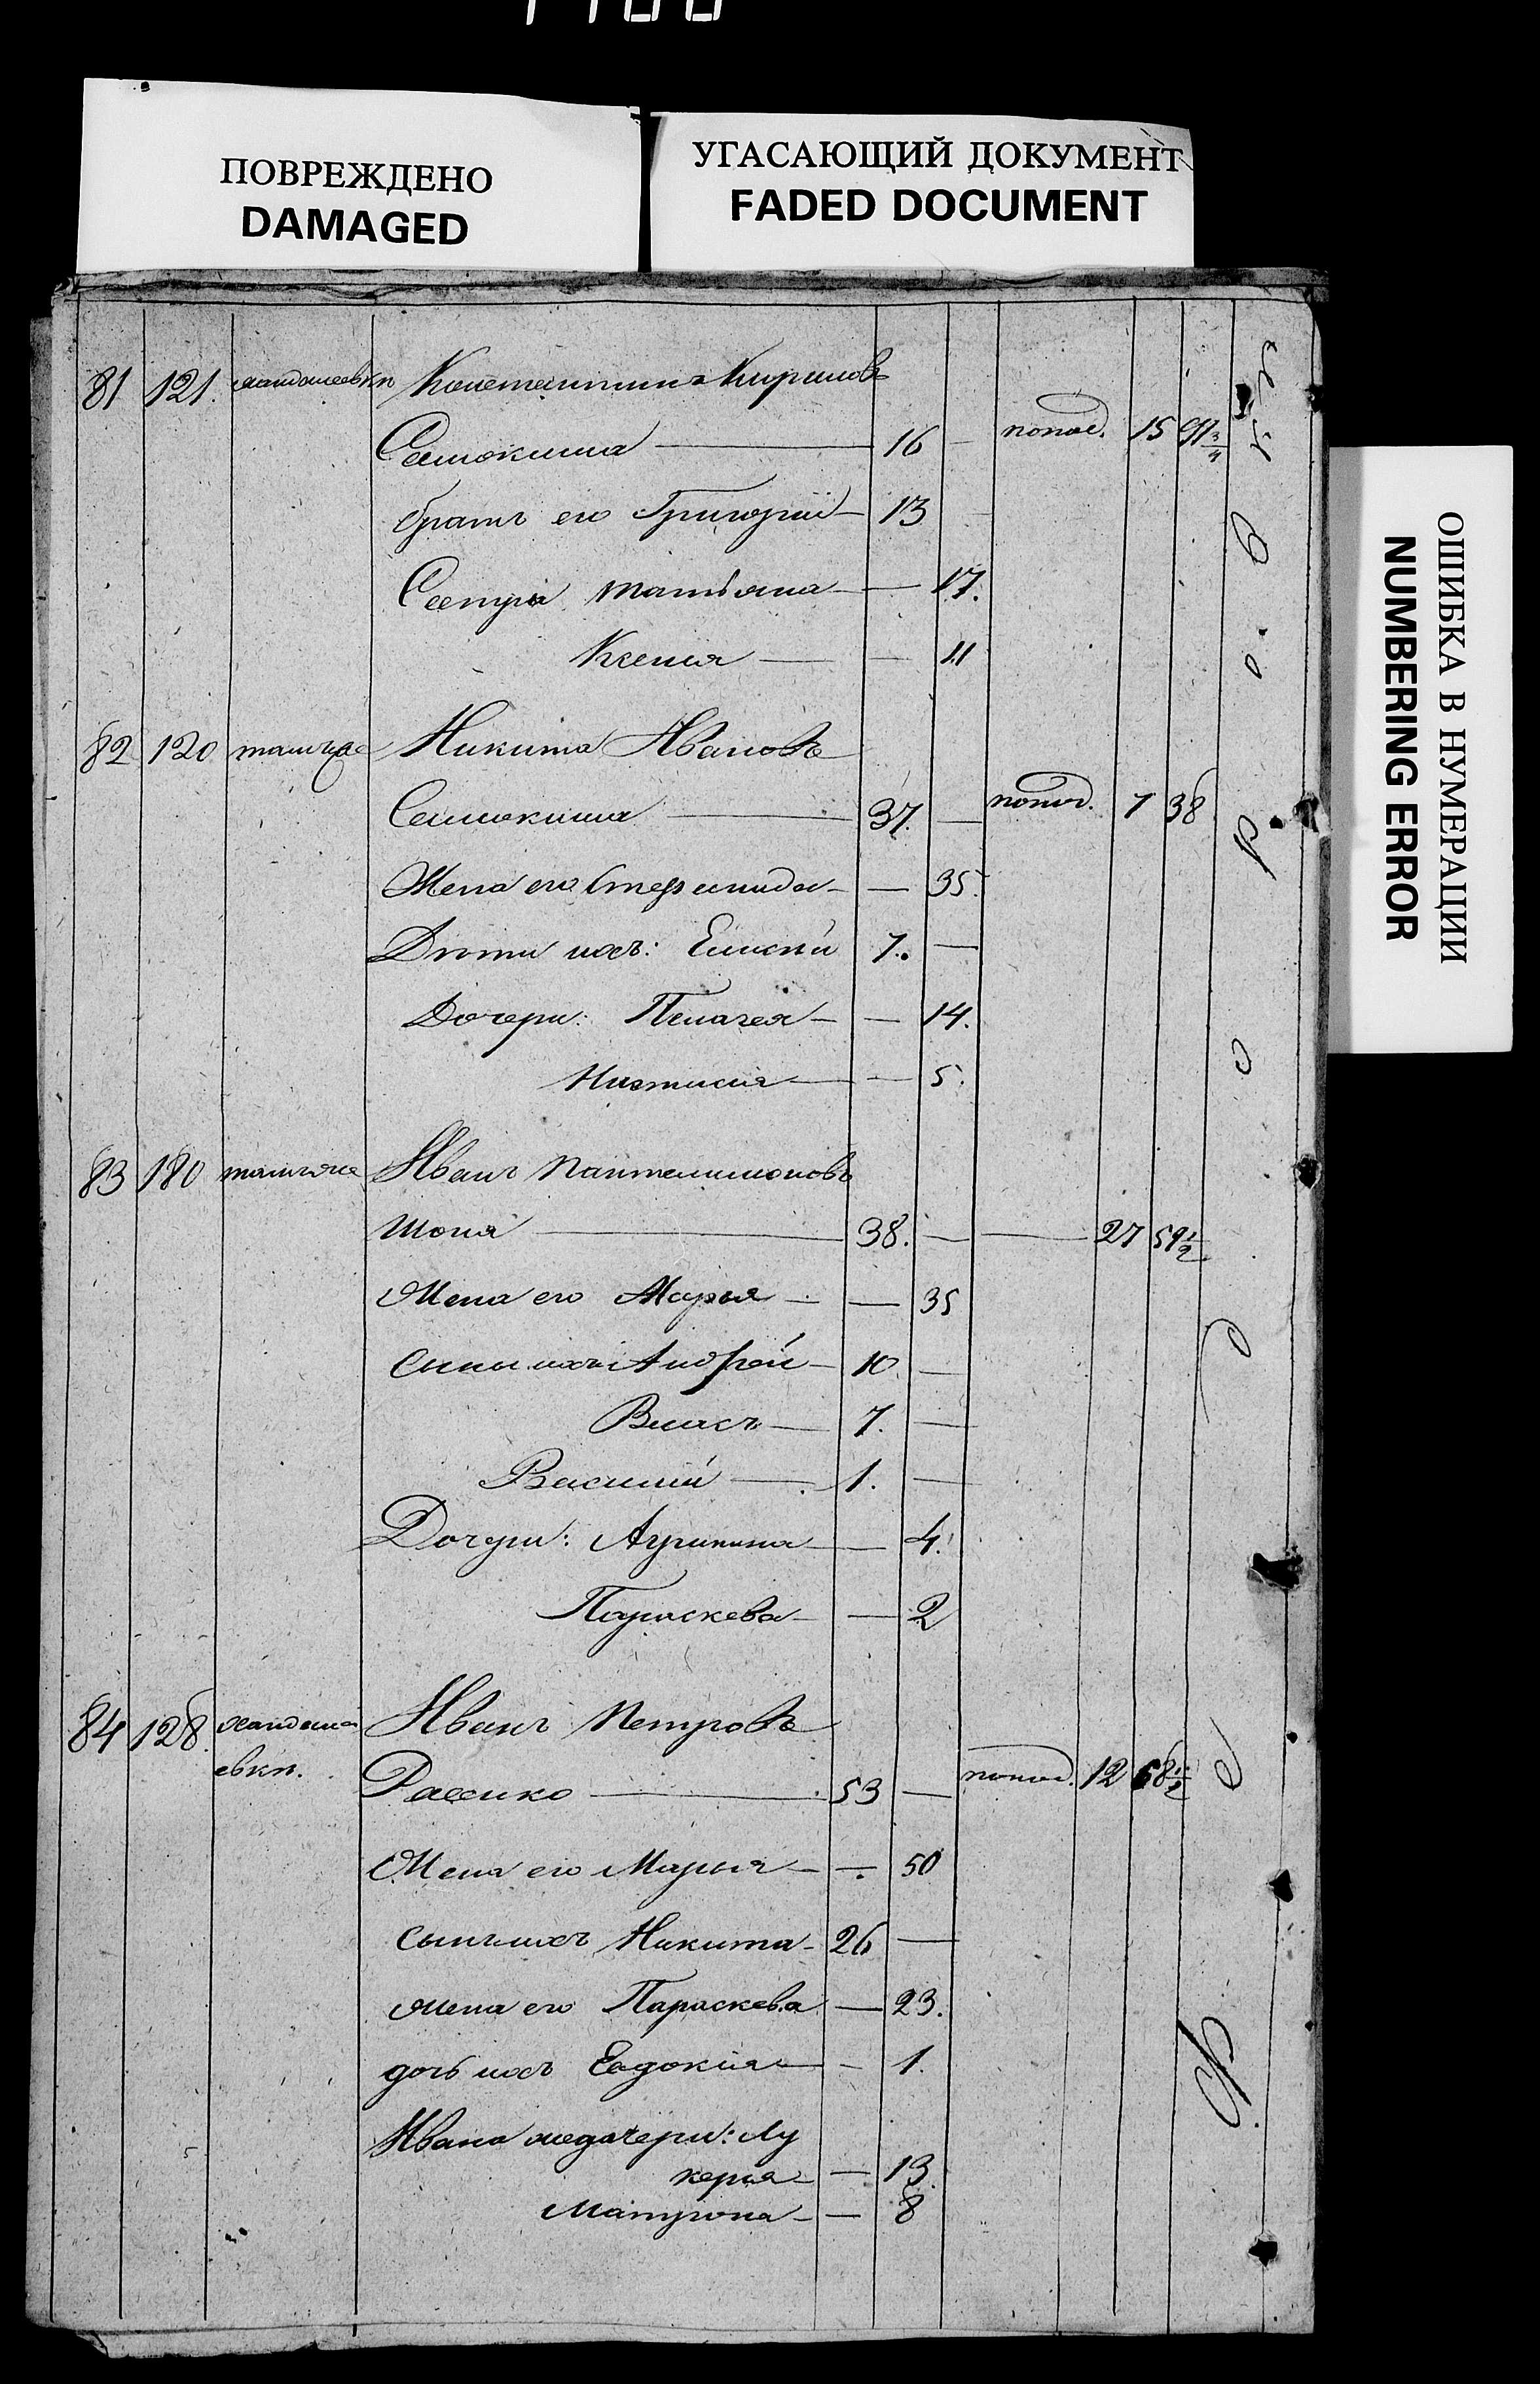 ПОВРЕЖДЕНО
DAMAGED
УГАСАЮЩИЙ ДОКУМЕНТ
FADED DOCUMENT
ОШИБКА В НУМЕРАЦИИ
NUMBERING ERROR
81 121. Константинъ Кириловъ
Самокиша — 16 — 15 91 3/4
братъ его Григорій — 13 —
Сестра Татьяна — — 17.
Ксенія — — 11
82 120 Никита Ивановъ
Самокиша — 37. — 7 38
Жена его Степанида — — 35.
Дѣти ихъ: Елисѣй 7. —
Дочери: Пелагея — — 14.
Настасія — — 5.
83 180 Иванъ Пантелимоновъ
Шопа — 38. — — 27 59 1/2
Жена его Марья — — 35
Сыны ихъ: Андрей — 10. —
Власъ — 7. —
Василій — 1. —
Дочери: Агрипина — — 4.
Параскева — — 2
84 128. Иванъ Петровъ
евкп. 53 — 12 68 1/2
Жена его Марья — — 50
сынъ ихъ Никита — 26 —
жена его Параскева — 23.
дочь ихъ Евдокія — — 1.
Ивана же дочери: Лу
керья — — 13.
Матрона — — 8